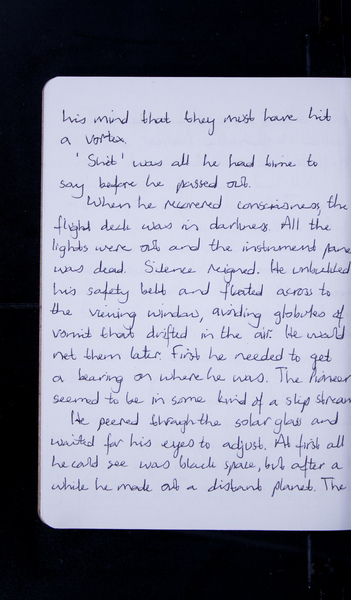 his mind that they must have hit
a vortex.
'Shit' was all he had time to
say before he passed out.
When he recovered consciousness, the
flight deck was in darkness. All the
lights were out and the instrument pane
was dead. Silence reigned. He unbuckled
his safety belt and floated across to
the viewing window, avoiding globules of
vomit that drifted in the air. He would
net them later. First he needed to get
a bearing on where he was. The Pioneer
seemed to be in some kind of a slip stream
He peered through the solar glass and
waited for his eyes to adjust. At first all
he could see was black space, but after a
while he made out a distant planet. The